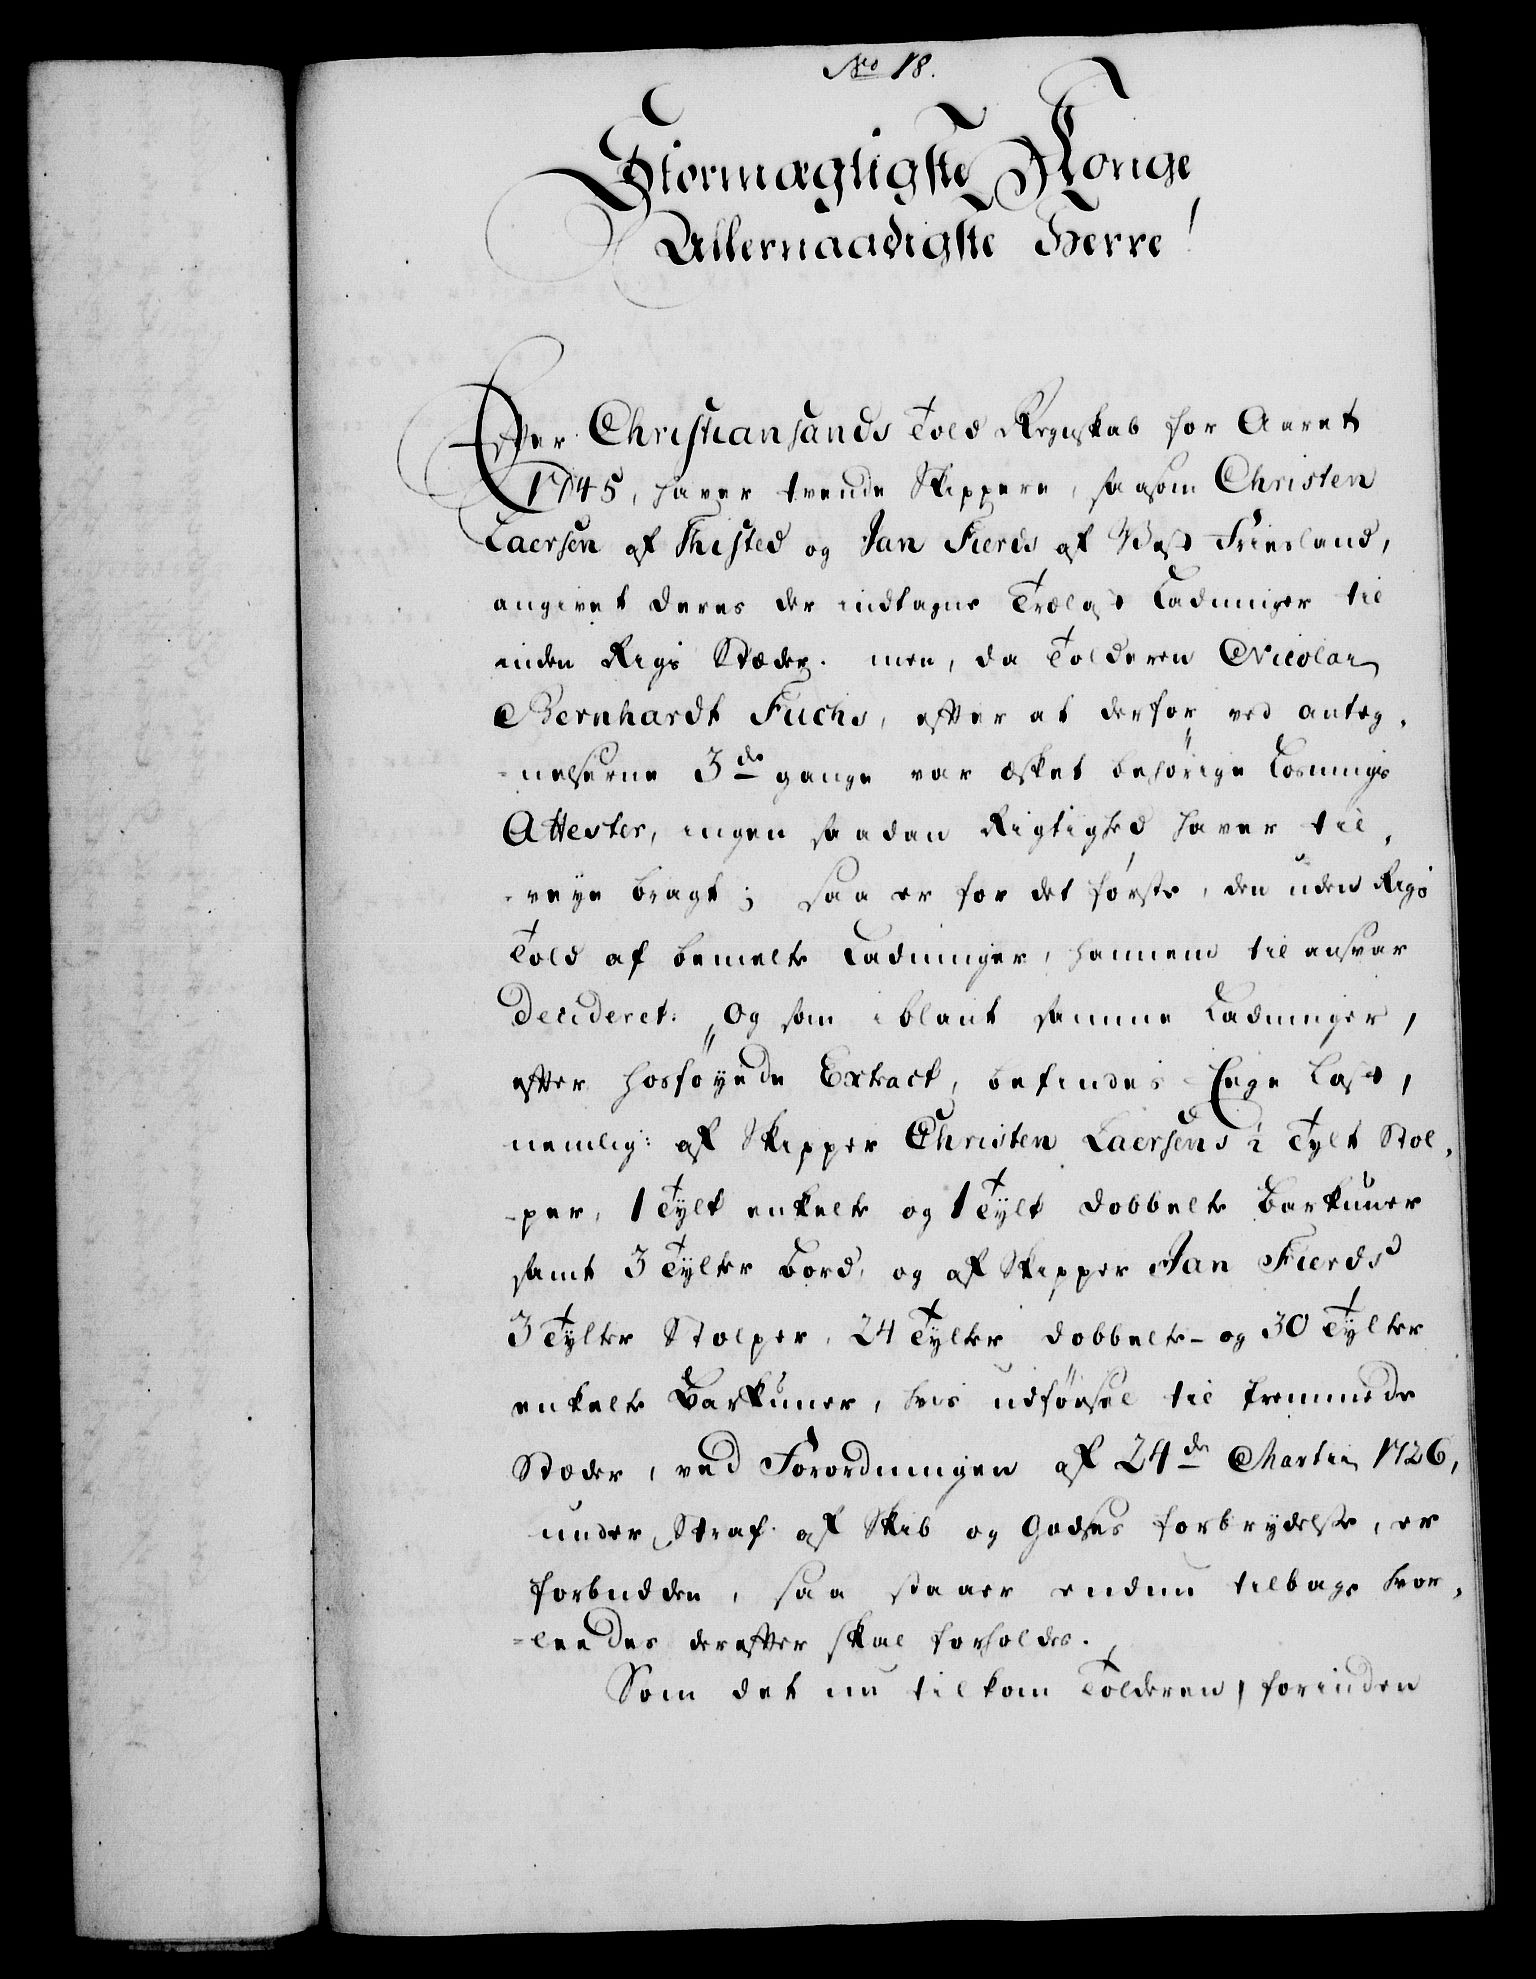 No 18.
Stormægtigste Konge
Allernaadigste Herre!
Efter Christiansands Told Regnskab for Aaret
1745, haver tvende Skippere, saasom Christen
Laersen af Thisted og Jan Fierds af West Friesland,
angivet deres der indtagne Trælast Ladninger til
inden Rigs Stæder. men, da Tolderen Nicolai
Bernhardt Fuchs, efter at derfor ved anteg,
-nelserne 3de gange var æsket behörige Losnings
Attester, ingen saadan Rigtighed haver til,
-veye bragt; saa er for det förste, den uden Rigs
Told af bemelte Ladninger, hannem til ansvar
Decideret: Og som iblant samme Ladninger,
efter hosföyede Extract, befindes Ege Last,
nemlig: af Skipper Christen Laersens 2 Tylt Stol,
-per, 1 Tylt enkelte og 1 Tylt dobbelte Barkuner
samt 3 Tylter Bord, og af Skipper Jan Fierds
3 Tylter Stolper, 24 Tylter dobbelte- og 30 Tylter
enkelte Barkuner, hvis udförsel til fremmede
Stæder, ved Forordningen af 24de Martii 1726,
under Straf af Skib og Godses forbrydelse, er
forbudden, saa staaer endnu tilbage hvor,
-leedes derefter skal forholdes.
Som det nu tilkom Tolderen, forinden